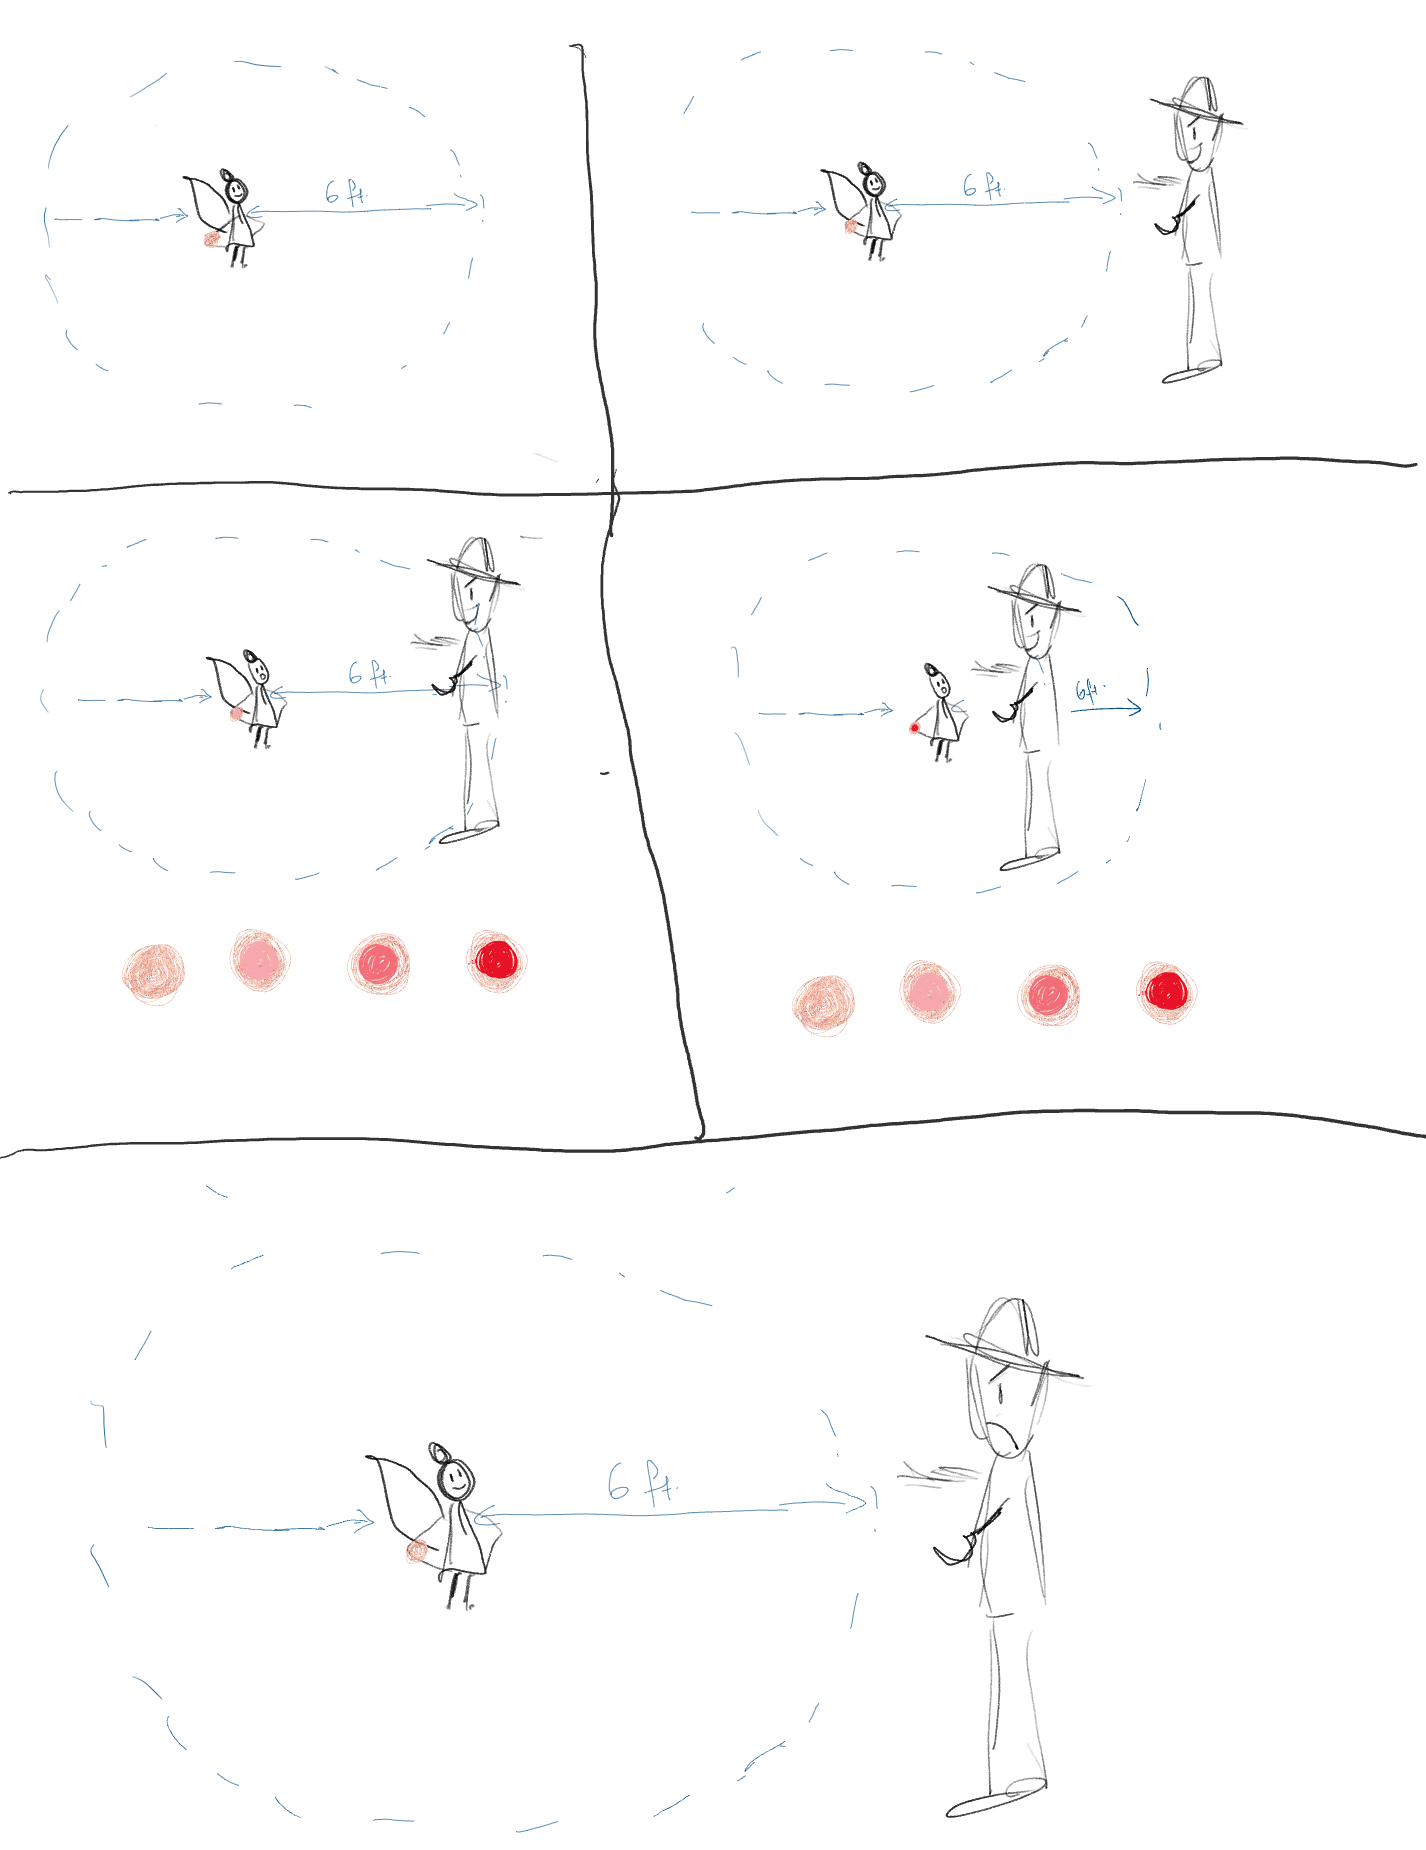 6 ft.
6 ft.
6 ft.
6ft.
6 ft.